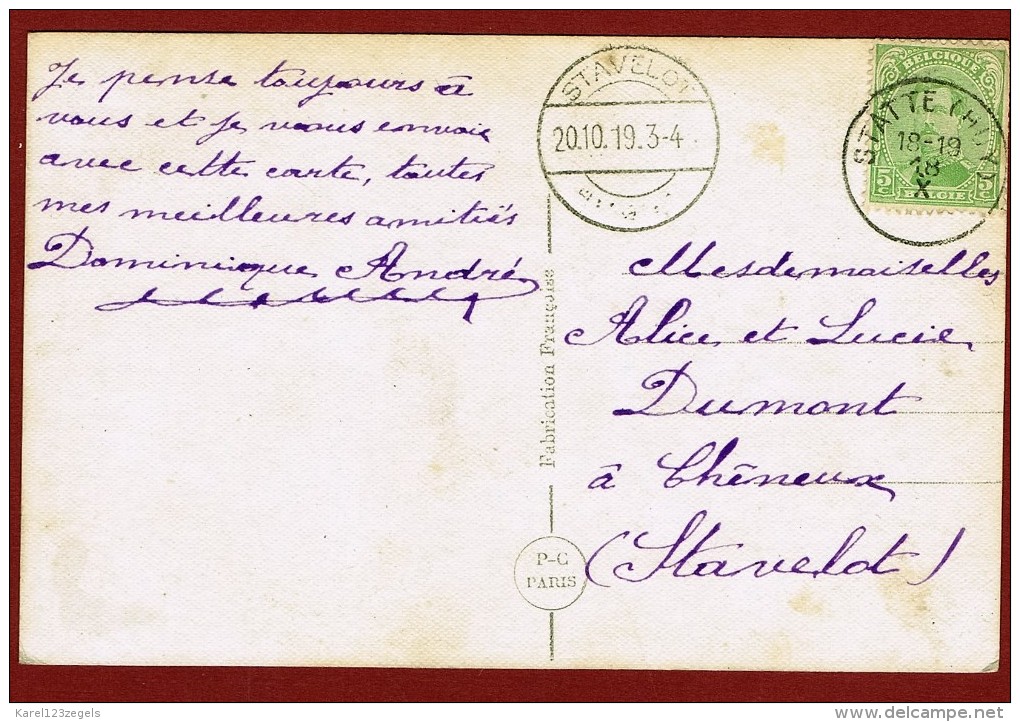 Je pense toujours à
vous et je vous envoie
avec cette carte, toutes
mes meilleures amitiés
Dominique André
STAVELOT
20.10.19.3-4
BELGIQUE
5c 5c
BELGIE
STATTE
18-19
18
X
Mesdemoiselles
Alice et Lucie
Dumont
à Chêneux
(Stavelot)
Fabrication Française
P-C
PARIS
Karel123zegels
delcampe.net